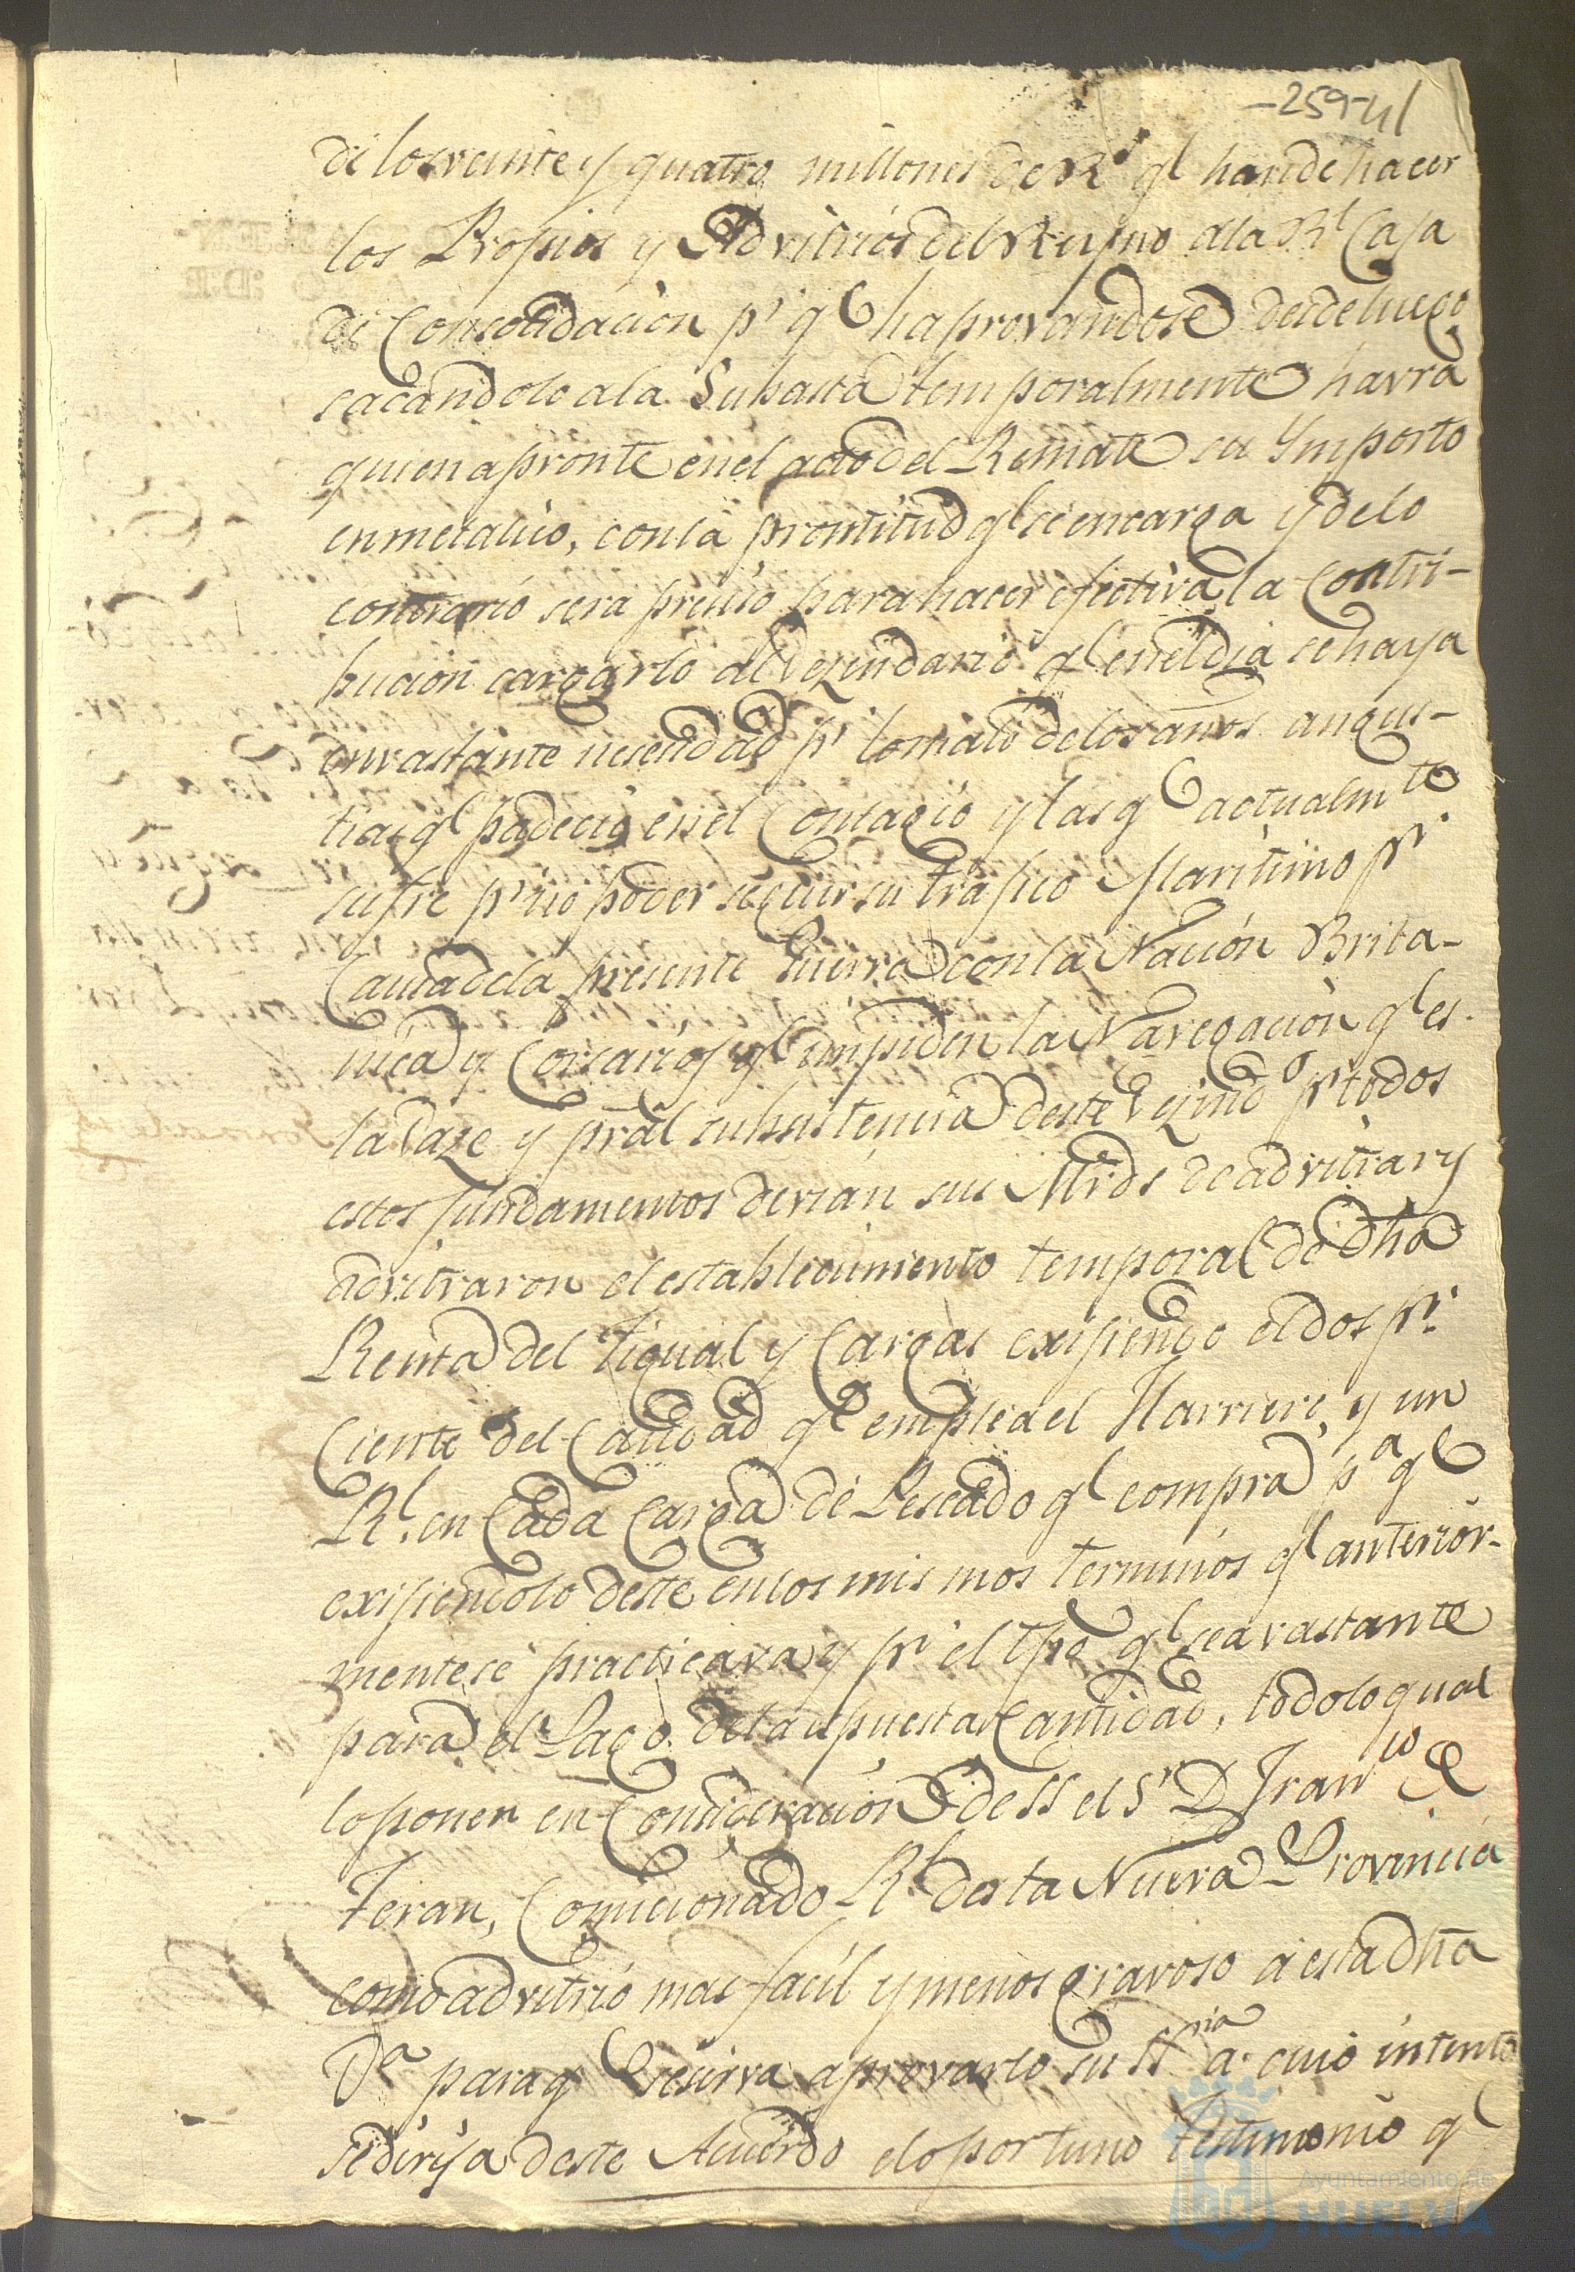 -259-41
de los veinte y quatro millones de Rs ql han de hacer
los Propios y Advitrios del Reyno a la Rl Caja
de Consolidacion pr ql haprovandose desde luego
sacandolo a la Subasta temporalmente havra
quien apronte en el acto del Remate su Ymporto
en metalico, con la prontitud ql se encarga y de lo
contrario sera preciso para hacer efectiva la Contri-
bucion cargarlo al Vezindario ql en el dia se haya
en vastante nesecidad pr lo malo de los años angus-
tias ql padecio en el Contagio y las ql actualmte
sufre pr no poder seguir su trafico Maritimo pr
Causa de la presente Guerra con la Nacion Brita-
nica y Corsarios ql impiden la Navegacion ql es
la Vaze y pral subsistencia deste Vezindo pr todos
estos fundamentos devian sus Mrds de advitrar y
advitraron el establecimiento temporal de dha
Renta del Tigual y Cargas exisiendo el dos pr
Ciento del Caudad ql emplea el Harriere, y un
Rl. en Cada Carga de Pescado ql compra pa ql
exisiendolo deste en los mismos terminos ql anterior-
mente se practicava y pr el tpo ql sea vastante
para el Pago de la espuesta Cantidad, todo lo qual
lo ponen en Concideracion de SS el Sr D Franco de
Teran, Comicionado Rl desta Nueva Provincia
como advitrio mas facil y menos gravoso a esta dha
Va para ql se sirva aprovarlo su SSria a cuio intento
se dirija deste Acuerdo el oportuno testimonio ql
Ayuntamiento de
HUELVA